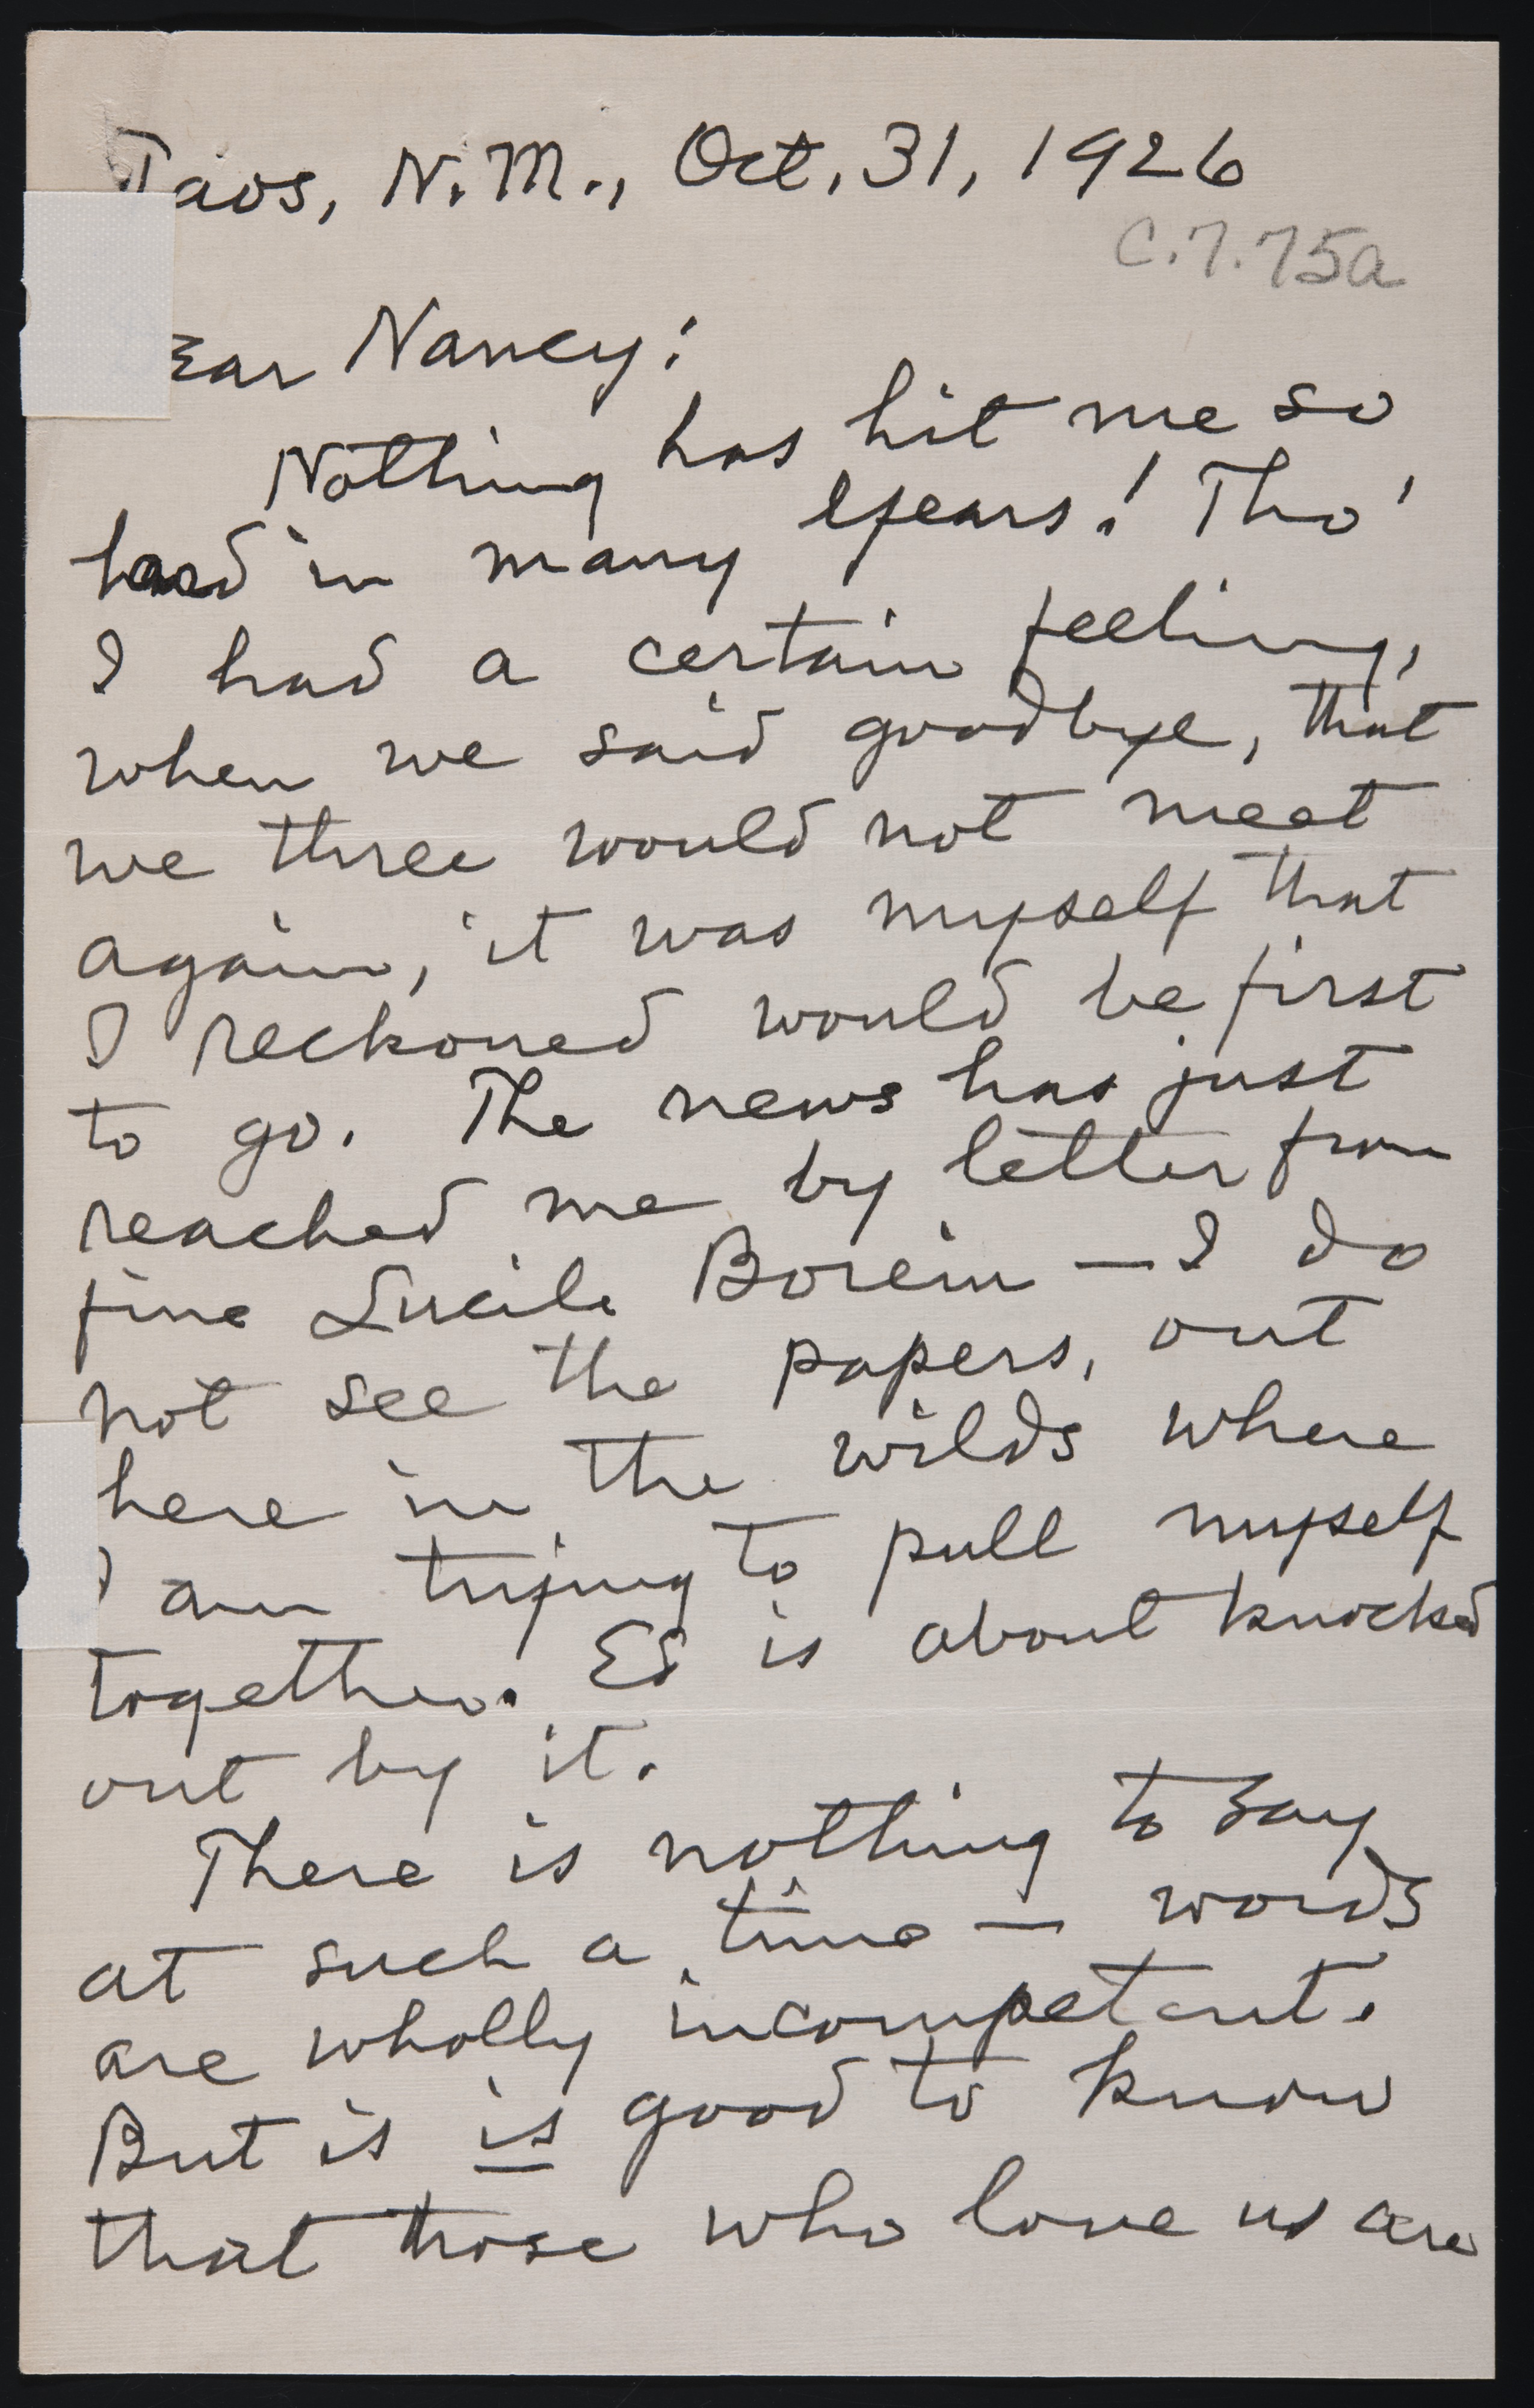 Taos, N.M., Oct. 31, 1926
C.7.75a
ear Nancy:
Nothing has hit me so
hard in many years! Tho'
I had a certain feeling,
when we said goodbye, that
we three would not meet
again, it was myself that
I reckoned would be first
to go. The news has just
reached me by letter from
fine Lucile Borein — I do
not see the papers, out
here in the wilds where
I am trying to pull myself
together. Ed is about knocked
out by it.
There is nothing to say
at such a time — words
are wholly incompetent.
But is is good to know
that those who love us are